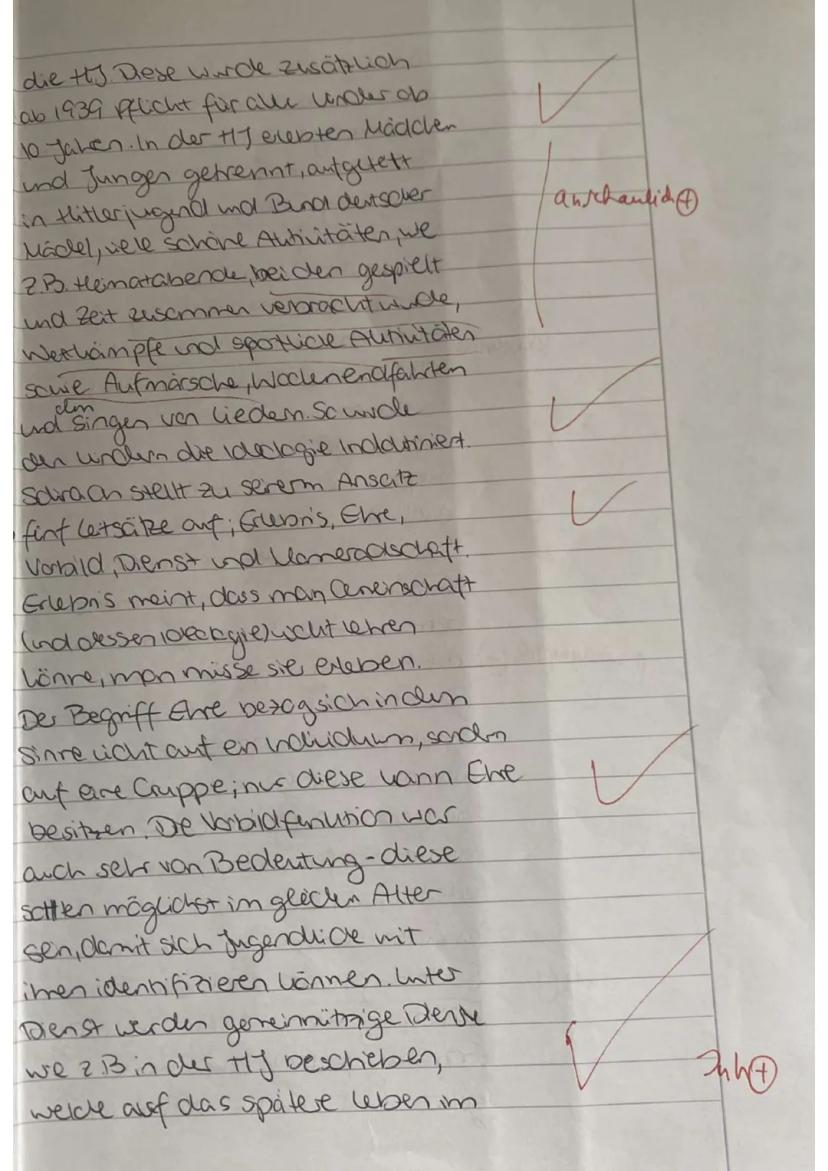 die HJ. Diese wurde zusätzlich
ab 1939 Pflicht für alle Kinder ab
10 Jahren. In der HJ erlebten Mädchen
und Jungen getrennt, aufgeteilt
in Hitlerjugend und Bund deutscher
Mädel, viele schöne Aktivitäten, wie
z.B. Heimatabende, bei den gespielt
und Zeit zusammen verbracht wurde,
Wettkämpfe und sportliche Aktivitäten
sowie Aufmärsche, Wochenendfahrten
und dem singen von Liedern. So wurde
den Kindern die Ideologie indoktriniert.
Schirach stellt zu seinem Ansatz
fünf Leitsätze auf; Erlebnis, Ehre,
Vorbild, Dienst und Kameradschaft.
Erlebnis meint, dass man Gemeinschaft
(und dessen Ideologie) nicht lehren
könne, man müsse sie erleben.
Der Begriff Ehre bezog sich in dem
Sinne nicht auf ein Individuum, sondern
auf eine Gruppe; nur diese kann Ehre
besitzen. Die Vorbildfunktion war
auch sehr von Bedeutung - diese
sollten möglichst im gleichen Alter
sein, damit sich Jugendliche mit
ihnen identifizieren können. Unter
Dienst werden gemeinnützige Dienste
wie z.B in der HJ beschrieben,
welche auf das spätere Leben im
anschaulich +